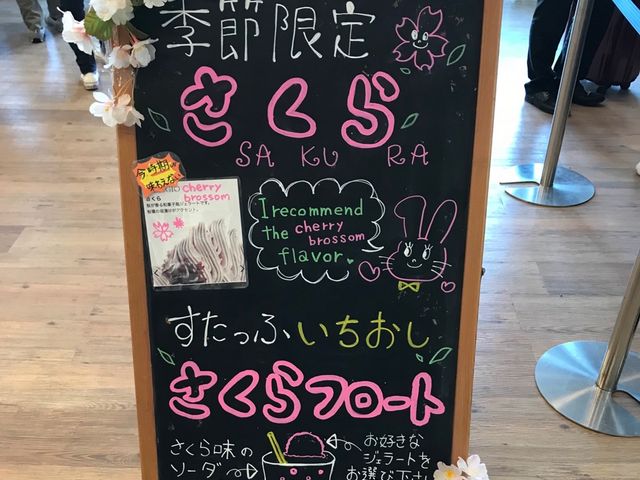 季節限定
さくら
SA KU RA
今時期しか
味わえない
cherry
brossom
さくら
I recommend
the cherry
brossom
flavor.
すたっふいちおし
さくらフロート
さくら味の
ソーダ
お好きな
ジェラートを
お選び下さい